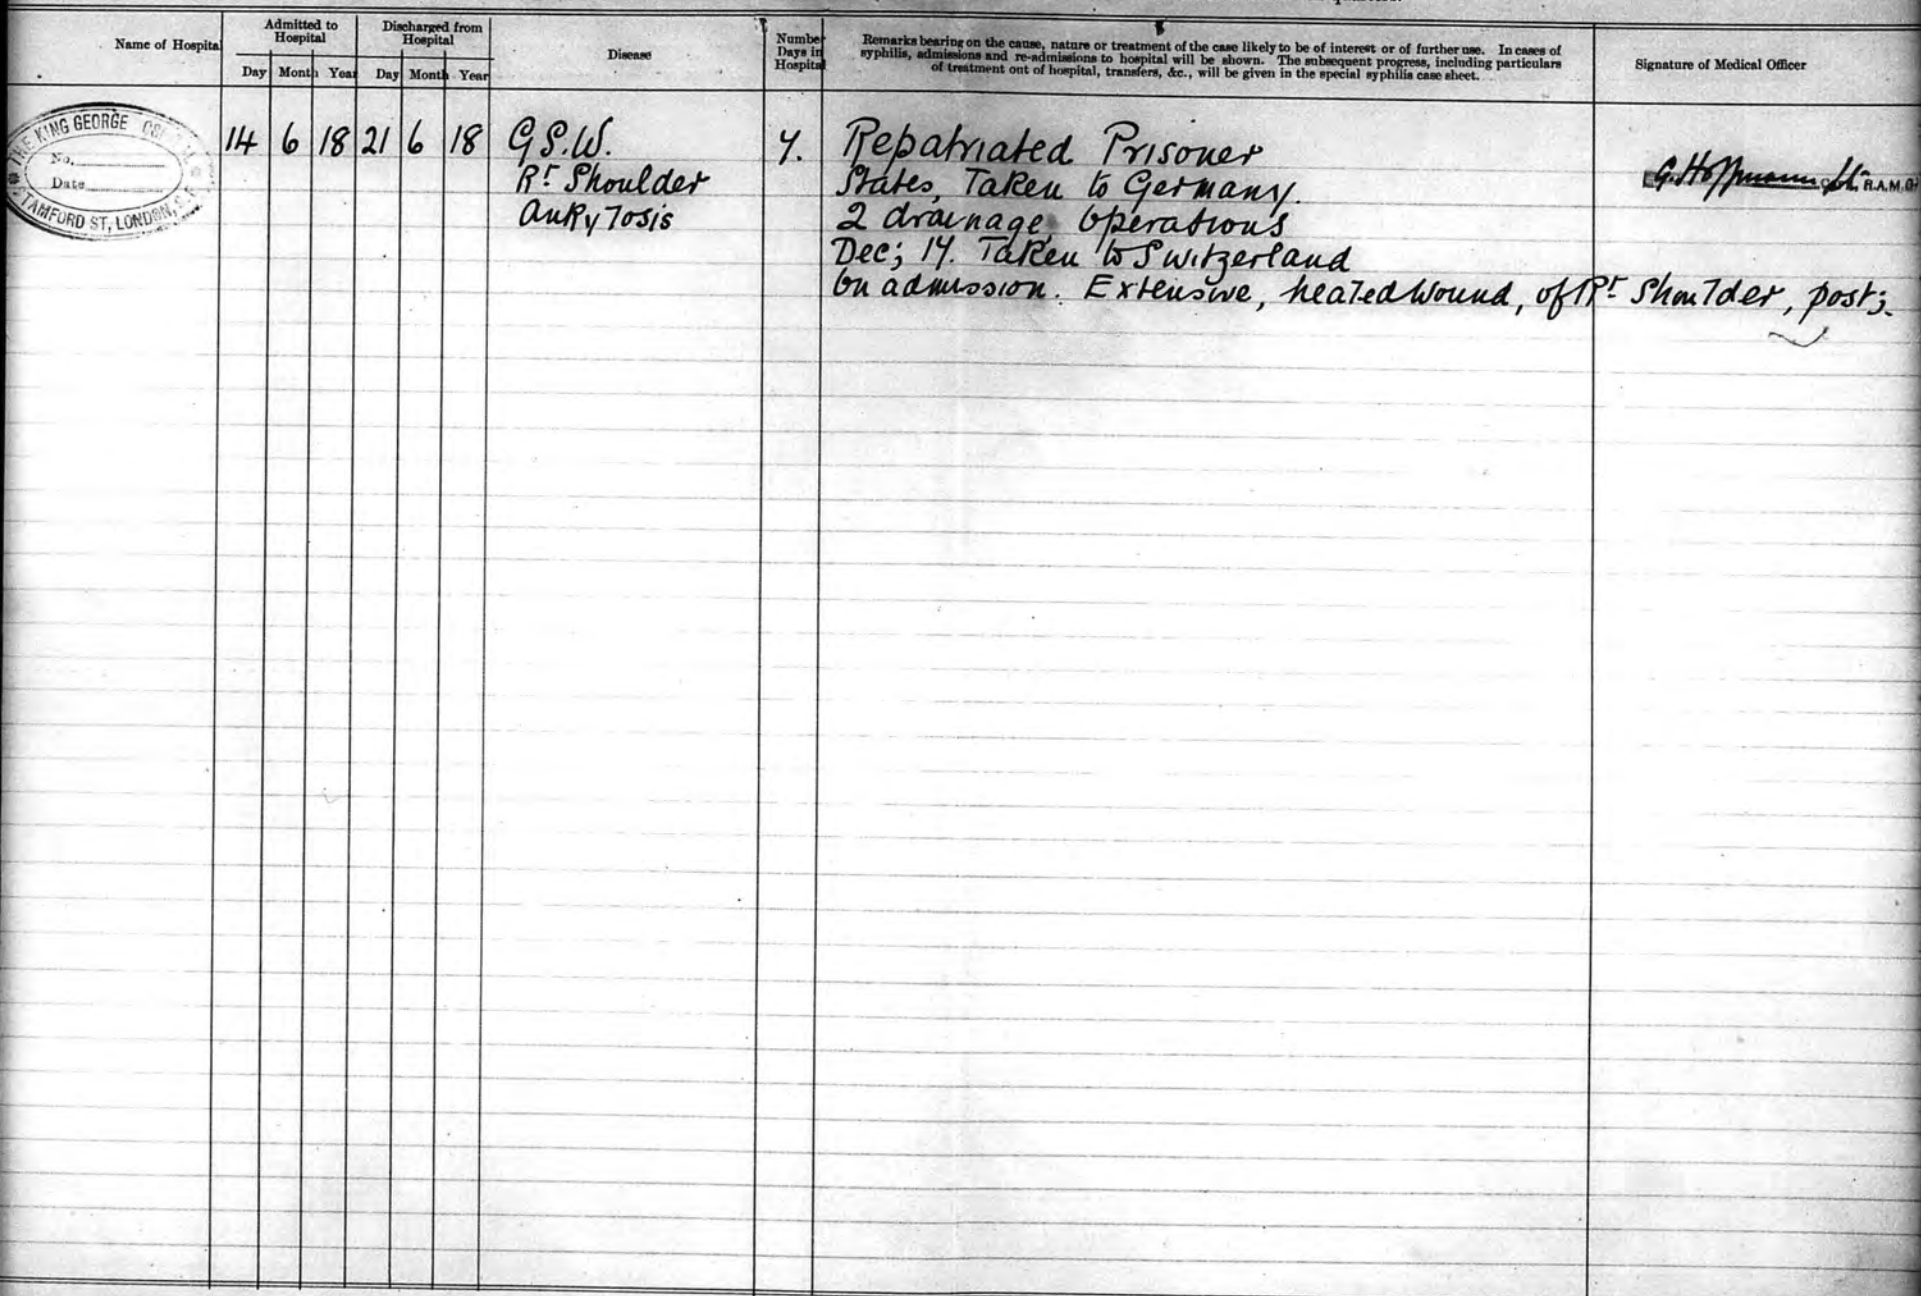 Name of Hospital
Admitted to Hospital
Discharged from Hospital
Day Month Year Day Month Year
Disease
Number Days in Hospital
Remarks bearing on the cause, nature or treatment of the case likely to be of interest or of further use. In cases of
syphilis, admissions and re-admissions to hospital will be shown. The subsequent progress, including particulars
of treatment out of hospital, transfers, &c., will be given in the special syphilis case sheet.
Signature of Medical Officer
THE KING GEORGE
No.
Date
STAMFORD ST, LONDON, S.E.
14 6 18 21 6 18 G.S.W. 7. Repatriated Prisoner
Rt Shoulder States, Taken to Germany.
G. Hoffmann R.A.M.C.
Ankylosis 2 drainage operations
Dec; 17. Taken to Switzerland
On admission. Extensive, healed wound, of Rt Shoulder, post;